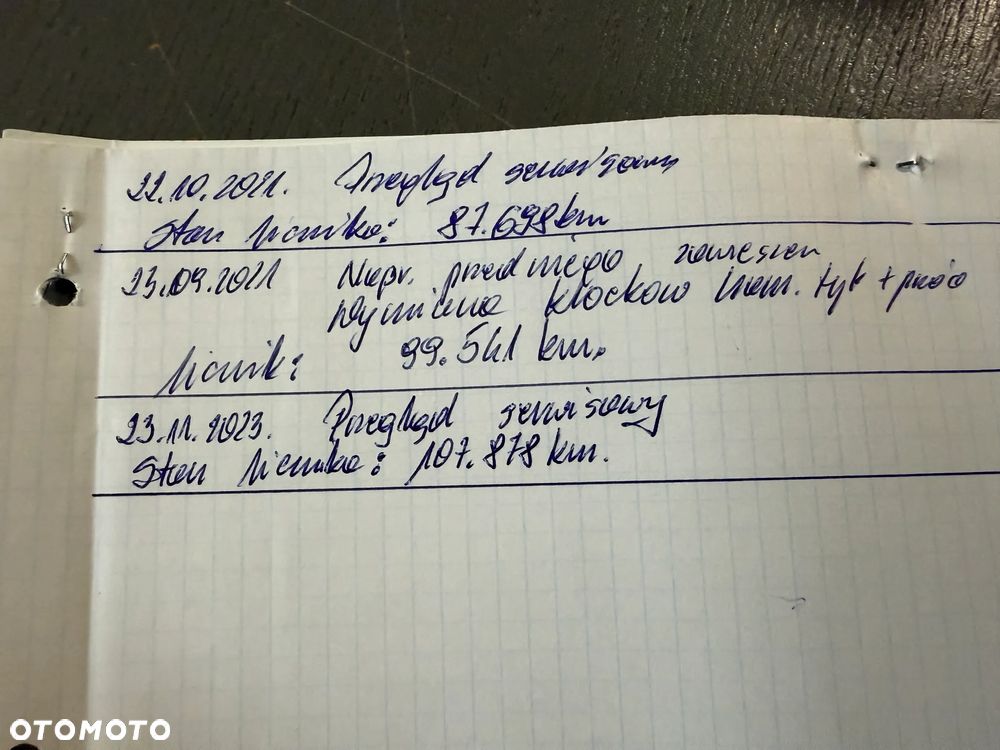 22.10.2021. Przegląd serwisowy
Stan licznika: 87.698 km
23.09.2021 Napr. przedniego zawieszen
Wymiana klocków ham. tył + przód
licznik: 99.541 km.
23.11.2023. Przegląd serwisowy
Stan licznika: 107.878 km.
OTOMOTO